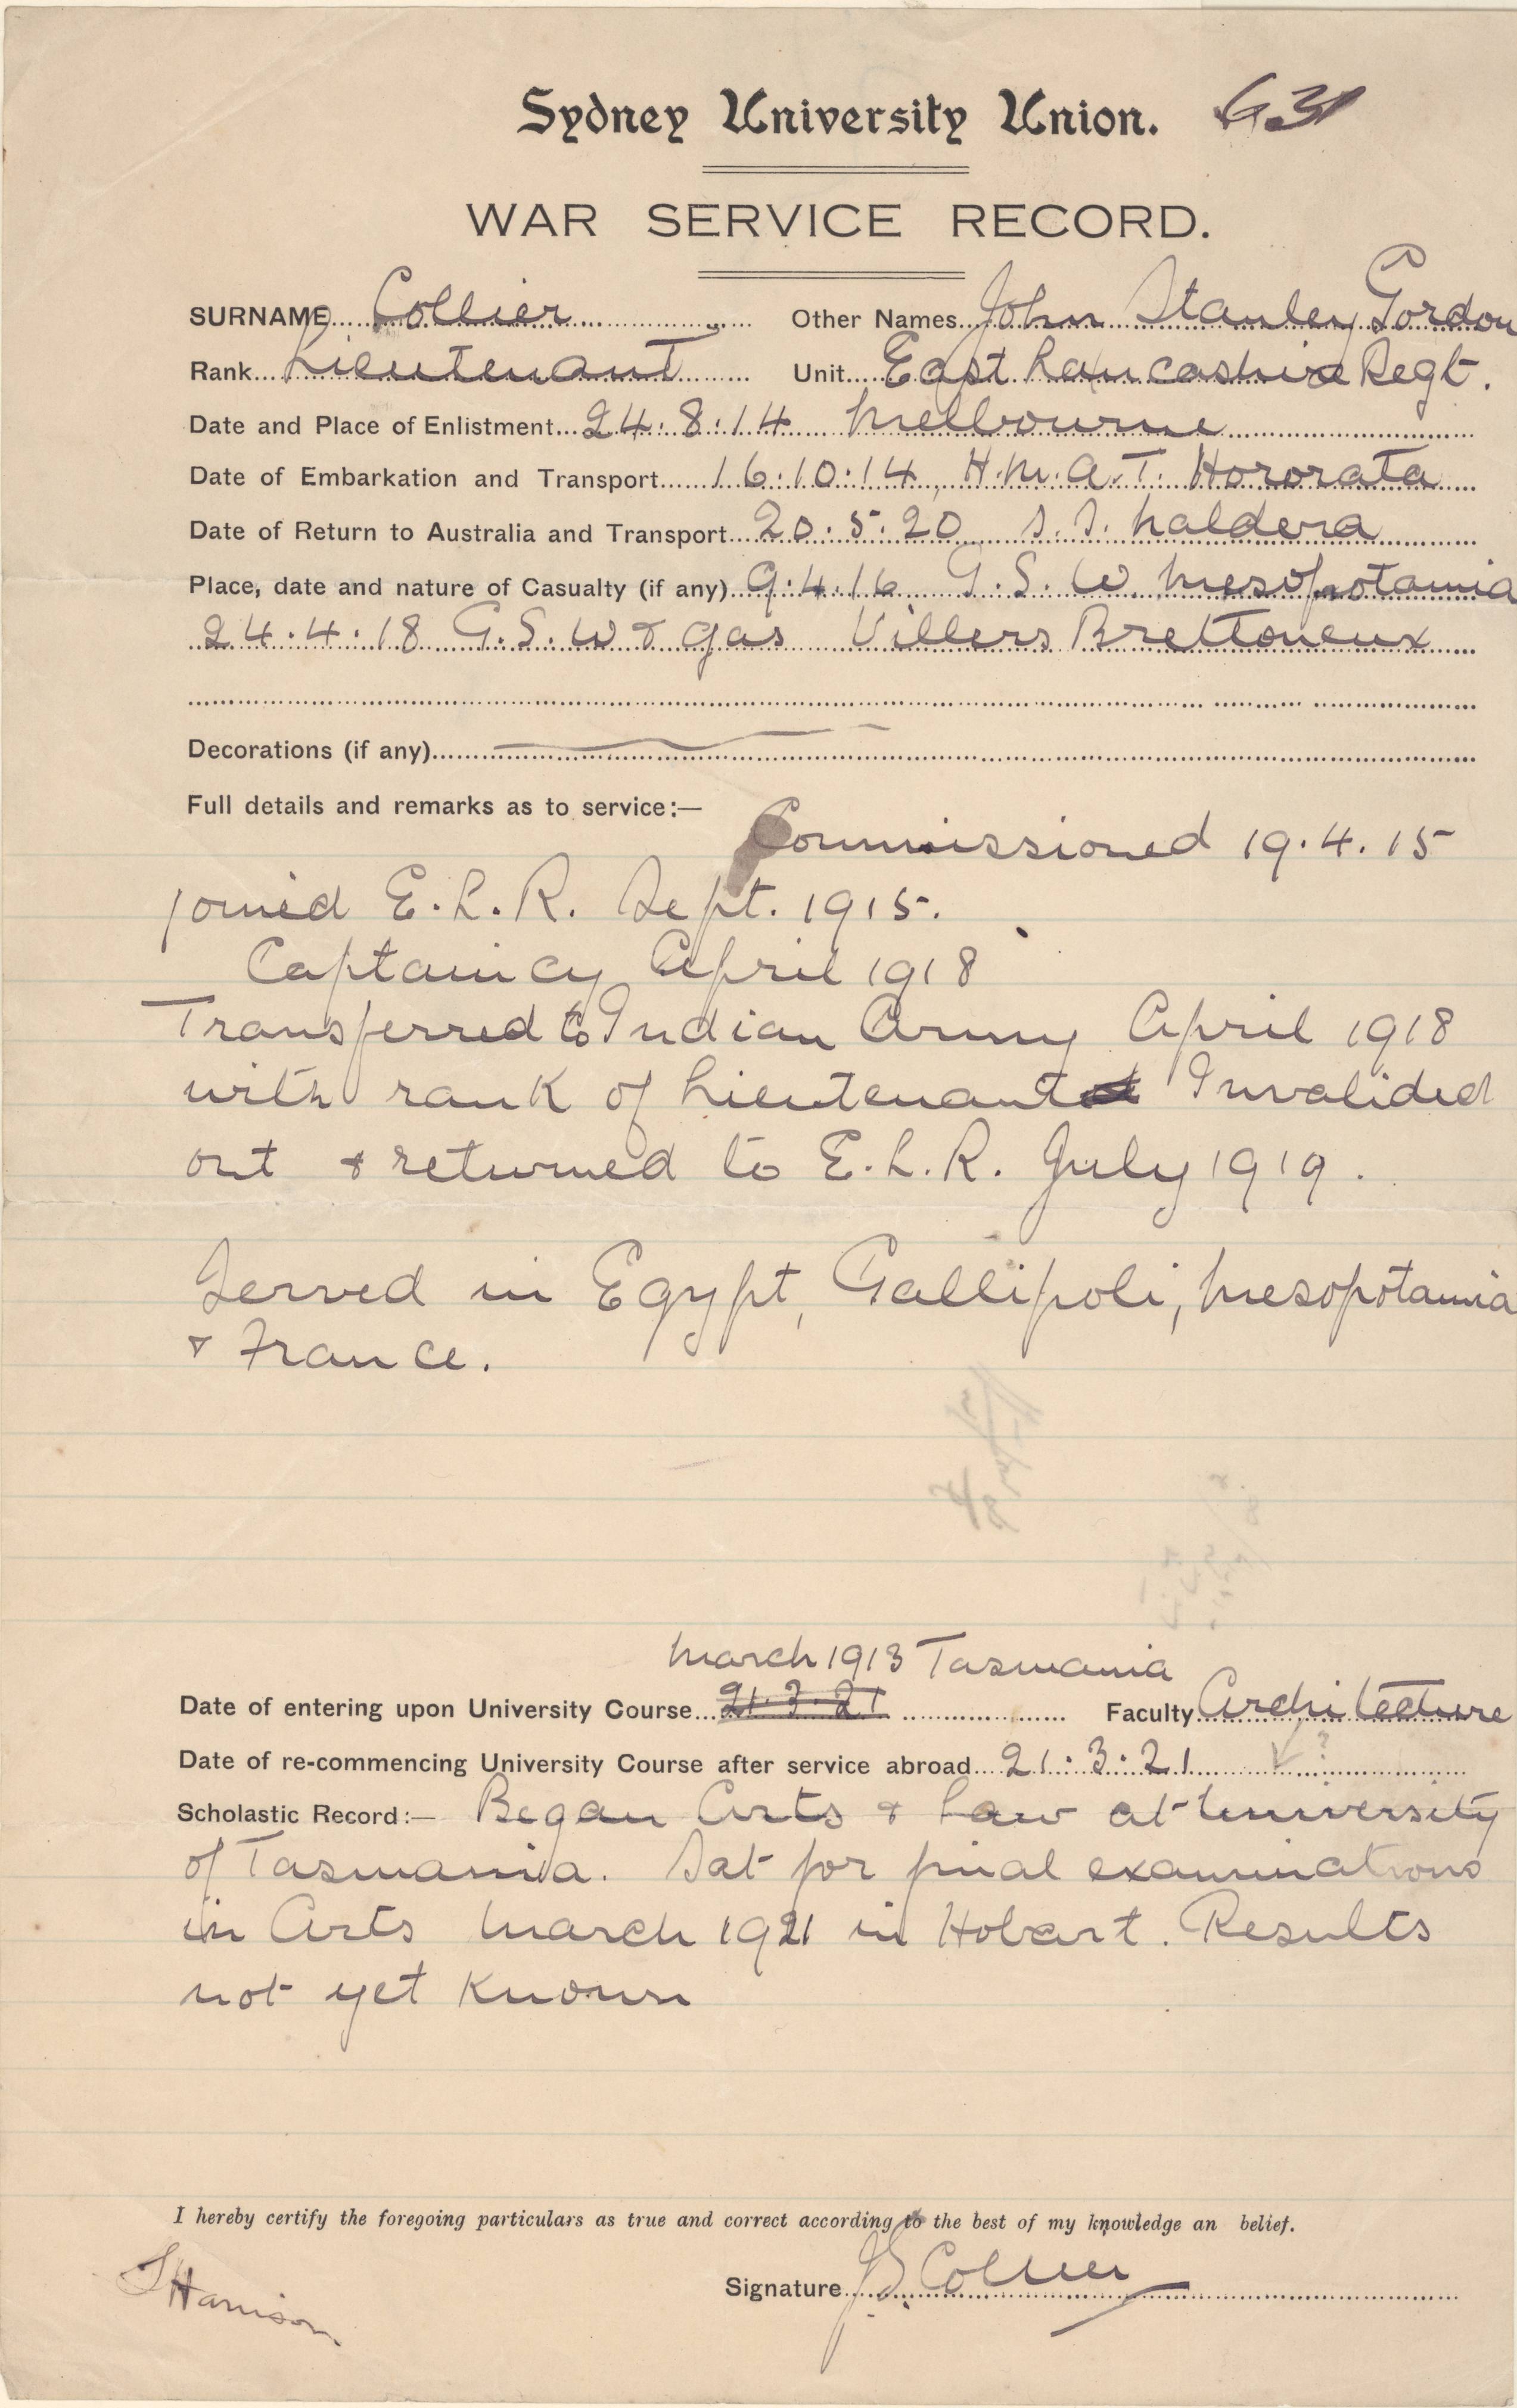 Sydney University Union. 631
WAR SERVICE RECORD.
SURNAME Collier Other Names John Stanley Gordon
Rank Lieutenant Unit East Lancashire Regt.
Date and Place of Enlistment 24.8.14 Melbourne
Date of Embarkation and Transport 16.10.14, H.M.A.T. Hororata
Date of Return to Australia and Transport 20.5.20 S.S. Naldera
Place, date and nature of Casualty (if any) 9.4.16 G.S.W. Mesopotamia
24.4.18 G.S.W & gas Villers Brettoneux
Decorations (if any)
Full details and remarks as to service:—
Commissioned 19.4.15
joined E.L.R. Sept. 1915.
Captaincy April 1918
Transferred to Indian Army April 1918
with rank of Lieutenant Invalided
out & returned to E.L.R. July 1919.
Served in Egypt, Gallipoli, Mesopotamia
& France.
March 1913 Tasmania
Date of entering upon University Course 21.3.21 Faculty Architecture
Date of re-commencing University Course after service abroad 21.3.21
Scholastic Record:— Began Arts & Law at University
of Tasmania. Sat for final examinations
in Arts March 1921 in Hobart. Results
not yet known
I hereby certify the foregoing particulars as true and correct according to the best of my knowledge an belief.
Signature J.S. Collier
Harrison